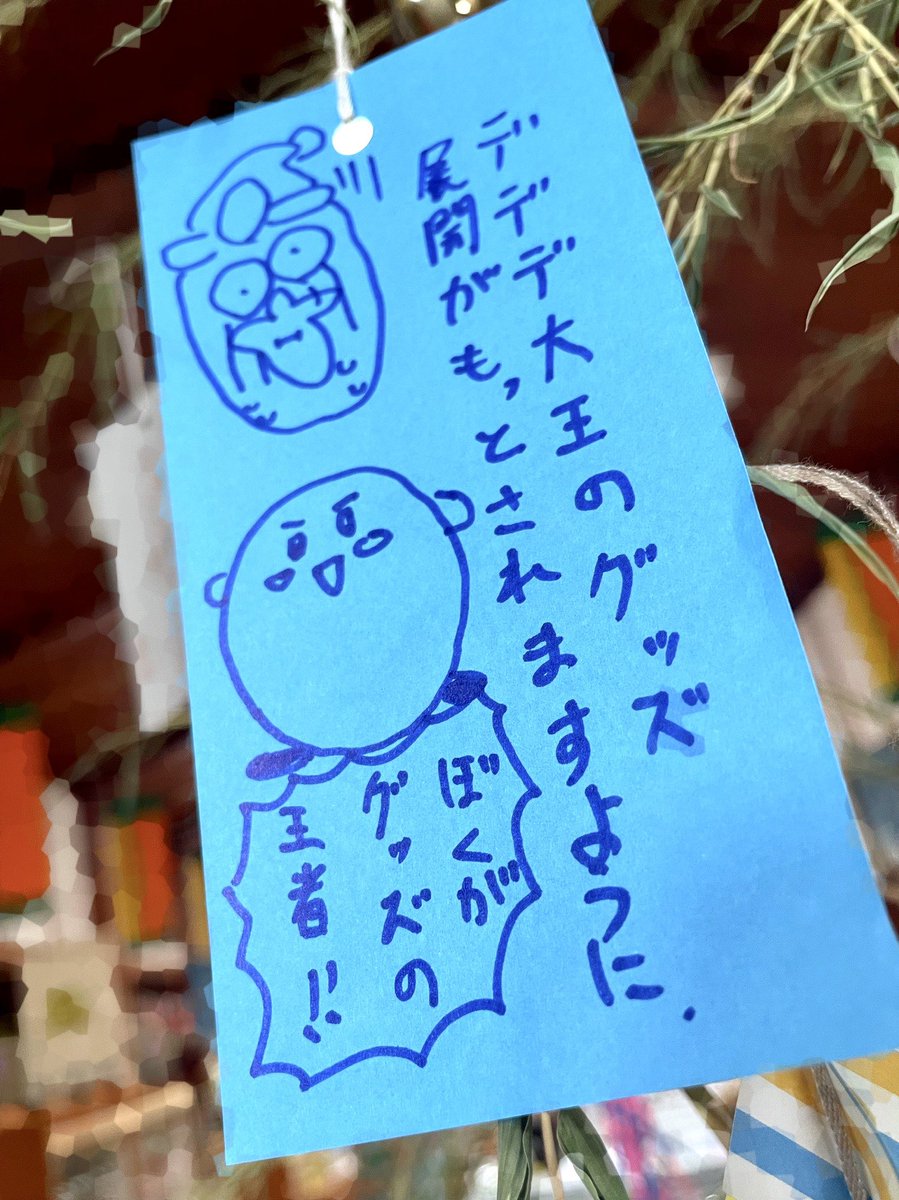 デデデ大王のグッズ
展開がもっとされますように.
ぼくが
グッズの
王者!!